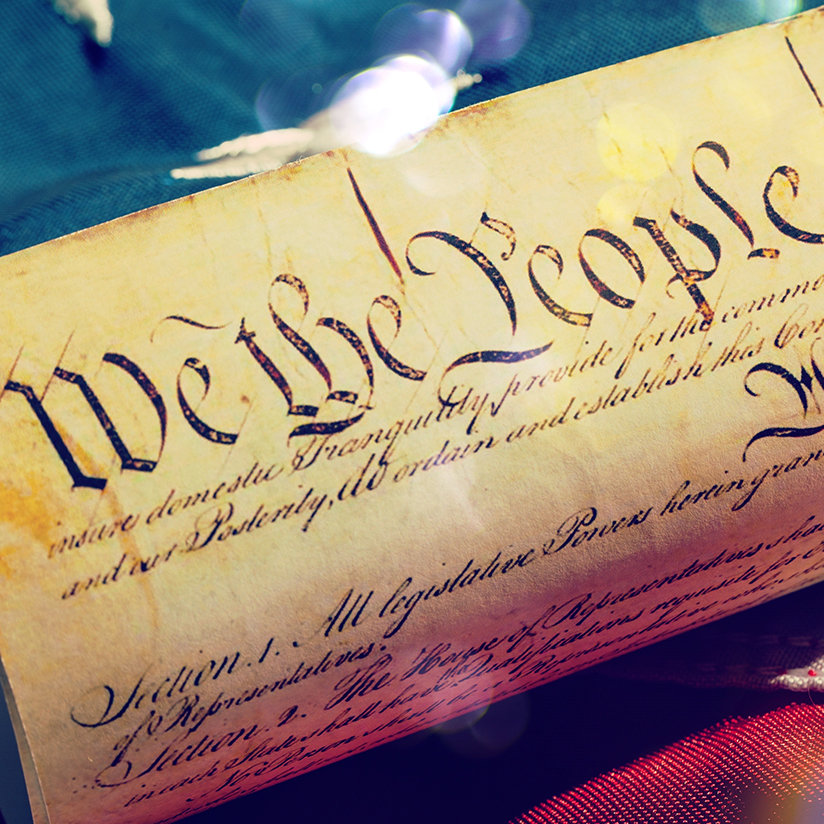 We the People
insure domestic Tranquility, provide for the commo
and our Posterity, do ordain and establish this Con
Section. 1. All legislative Powers herein gran
of Representatives.
Section. 2. The House of Representatives sha
in each State shall have Qualifications requisite for
No Person shall be a Representative